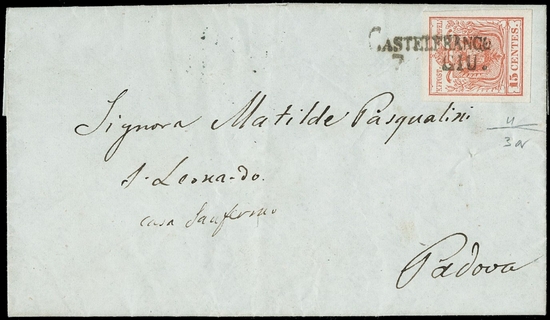 CASTELFRANCO
7 GIU.
15 CENTES.
Signora Matilde Pasqualini
S. Leonardo.
casa
Padova
4
3